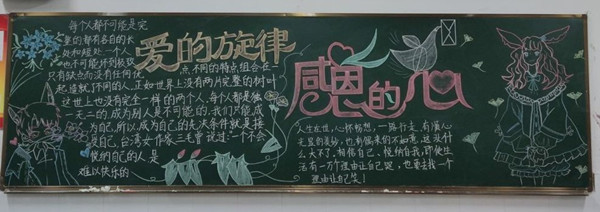 每个人都不可能是完
美的都有各自的长
处和短处一个人
也不可能好到极致
只有缺点而没有任何优
点,不同的特点组合在一
起造就了不同的人,正如世界上没有两片完整的树叶
这世上也没有完全一样的两个人,每个人都是独
一无二的,成为别人是不可能的,我们只能成
为自己,所以,成为自己的先天条件就是接
受自己,台湾女作家三毛曾说过:一个不会
悦纳自己的人是
难以快乐的
爱的旋律
感恩的心
人生在世,心怀梦想,一路行走,有赏心
的美妙,也有倒来的不如意,这没什
么大不了,相信自己,悦纳自我,即使生
活有一万个理由让自己哭,也要去找一个
理由让自己笑!